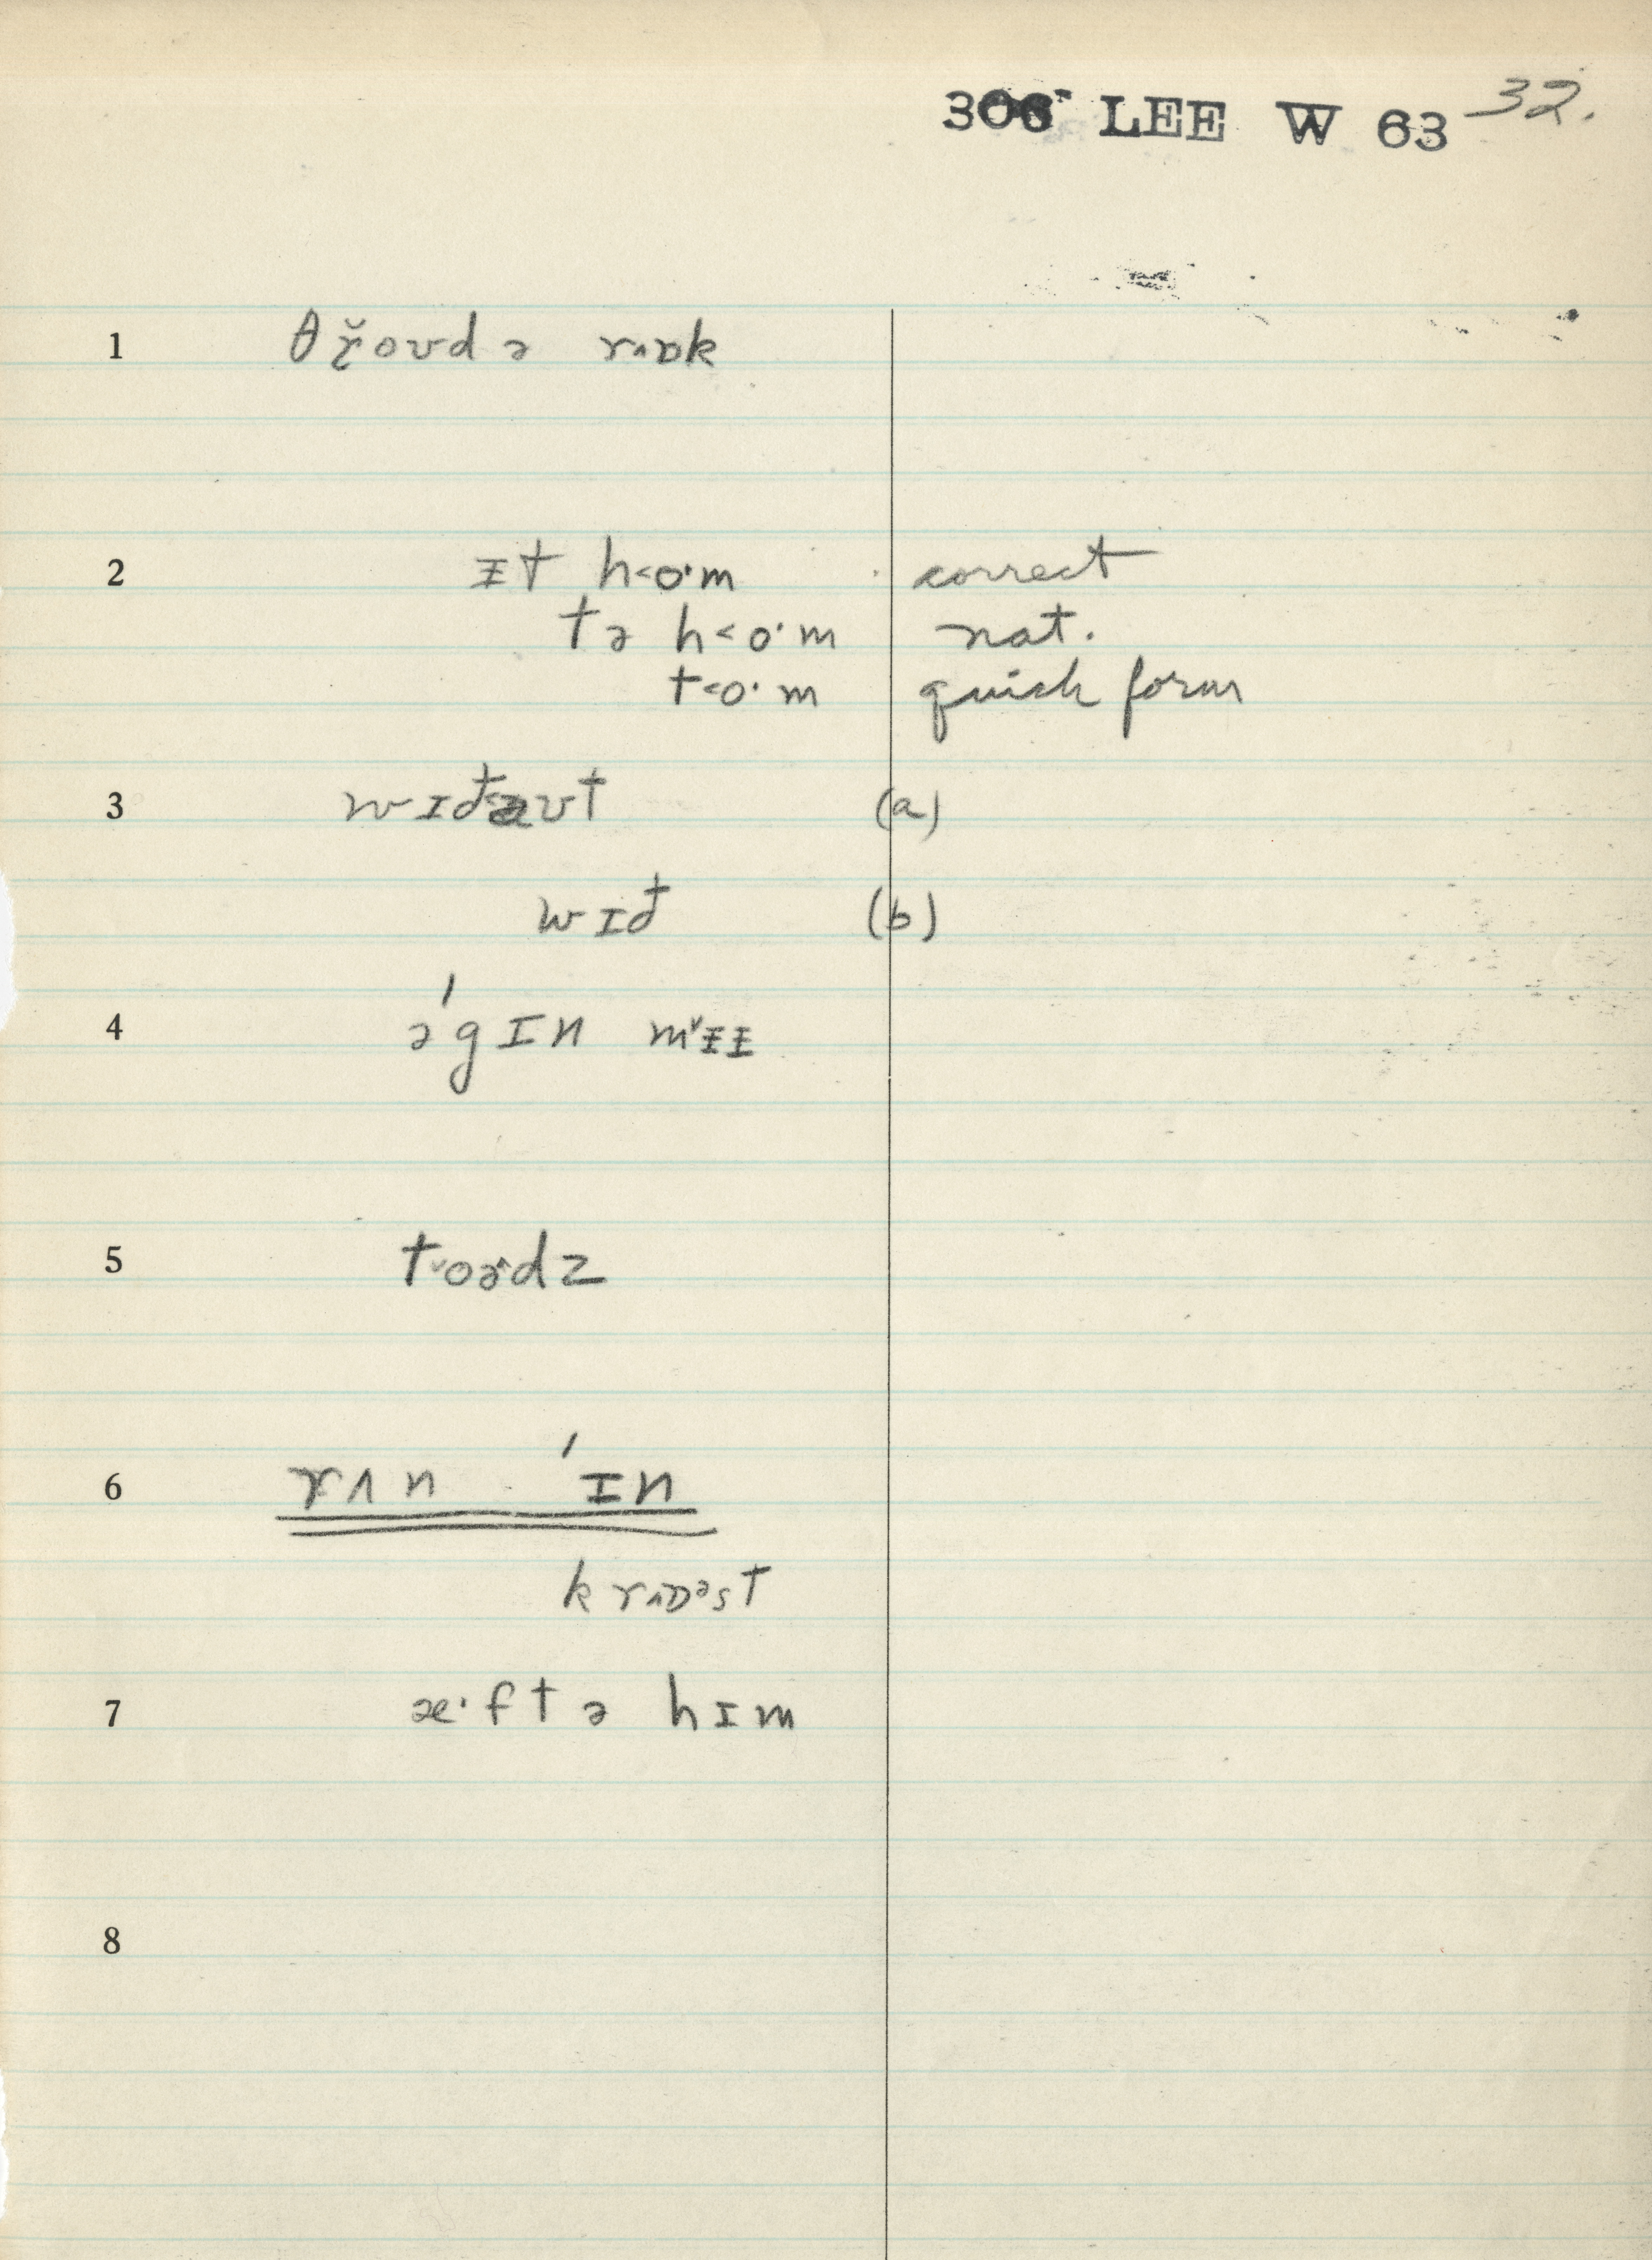 306 LEE W 63 32.
1 θɾ̆oʊd ə rʌɒk
2 ɪt h˂o·m correct
tə h˂o·m nat.
t˂o·m quick form
3 wɪđaʊt (a)
wɪđ (b)
4 ə'gɪn m˅ɨɨ
5 t˅oɚdz
6 rʌn 'ɪn
krʌɒᵊst
7 æ·ftə hɪm
8